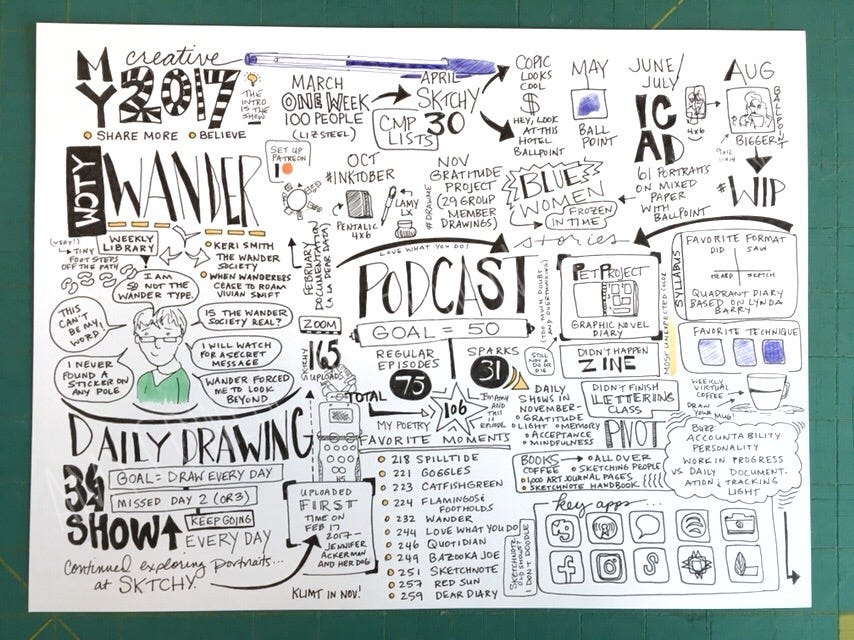 MY creative
2017
SHARE MORE BELIEVE
THE
INTRO
IS THE
SHOW
MARCH
ONE WEEK
100 PEOPLE
(LIZ STEEL)
APRIL
SKTCHY
30
CMP
LISTS
COPIC
LOOKS
COOL
$
HEY, LOOK
AT THIS
HOTEL
BALLPOINT
MAY
BALL
POINT
JUNE/
JULY
ICAD
4x6
61 PORTRAITS
ON MIXED
PAPER
WITH
BALLPOINT
AUG
BALLPOINT
BIGGER
9x12
11x14
#WIP
WOTY
WANDER
SET UP
PATREON
OCT
#INKTOBER
PENTALIC
4x6
LAMY
LX
#DRAWME
NOV
GRATITUDE
PROJECT
(29 GROUP
MEMBER
DRAWINGS)
BLUE
WOMEN
FROZEN
IN TIME
stories
(VERY!)
TINY
FOOT STEPS
OFF THE PATH
WEEKLY
LIBRARY
KERI SMITH
THE WANDER
SOCIETY
WHEN WANDERERS
CEASE TO ROAM
VIVIAN SWIFT
I AM
SO NOT THE
WANDER TYPE.
THIS
CAN'T
BE MY
WORD!
IS THE WANDER
SOCIETY REAL?
I WILL WATCH
FOR A SECRET
MESSAGE
I NEVER
FOUND A
STICKER ON
ANY POLE
WANDER FORCED
ME TO LOOK
BEYOND
FEBRUARY
DOCUMENTATION
(A LA DEAR DATA)
ZOOM
SKTCHY
165
UPLOADS
LOVE WHAT YOU DO!
PODCAST
GOAL = 50
REGULAR
EPISODES
75
SPARKS
31
TOTAL
106
MY POETRY
I'M AMY
AND THIS
IS
EPISODE
(TOO MUCH DOUBT
AND OVERTHINKING)
STILL
NOW A
DO OR
DIE
PET PROJECT
GRAPHIC NOVEL
DIARY
DIDN'T HAPPEN
ZINE
DIDN'T FINISH
LETTERING
CLASS
MOST UNEXPECTED COLOR
SYLLABUS
FAVORITE FORMAT
DID SAW
HEARD SKETCH
QUADRANT DIARY
BASED ON LYNDA
BARRY
FAVORITE TECHNIQUE
WEEKLY
VIRTUAL
COFFEE
DRAW
YOUR MUG!
DAILY
SHOWS IN
NOVEMBER-
GRATITUDE
LIGHT MEMORY
ACCEPTANCE
MINDFULNESS
PIVOT
BUZZ:
ACCOUNTABILITY
PERSONALITY
WORK IN PROGRESS
VS DAILY DOCUMENT-
ATION & TRACKING
LIGHT
DAILY DRAWING
GOAL = DRAW EVERY DAY
MISSED DAY 2 (OR 3)
SHOW
KEEP GOING
EVERY DAY
Continued exploring portraits...
at SKTCHY.
UPLOADED
FIRST
TIME ON
FEB 17
2017-
JENNIFER
ACKERMAN
AND HER DOG
KLIMT IN NOV!
FAVORITE MOMENTS
218 SPILLTIDE
221 GOGGLES
223 CATFISHGREEN
224 FLAMINGOS &
FOOTHOLDS
232 WANDER
244 LOVE WHAT YOU DO
246 QUOTIDIAN
249 BAZOOKA JOE
251 SKETCHNOTE
257 RED SUN
259 DEAR DIARY
BOOKS
COFFEE
ALL OVER
SKETCHING PEOPLE
1,000 ART JOURNAL PAGES
SKETCHNOTE HANDBOOK
SKETCHNOTE
OLD SHOWS?
I DON'T
key apps...